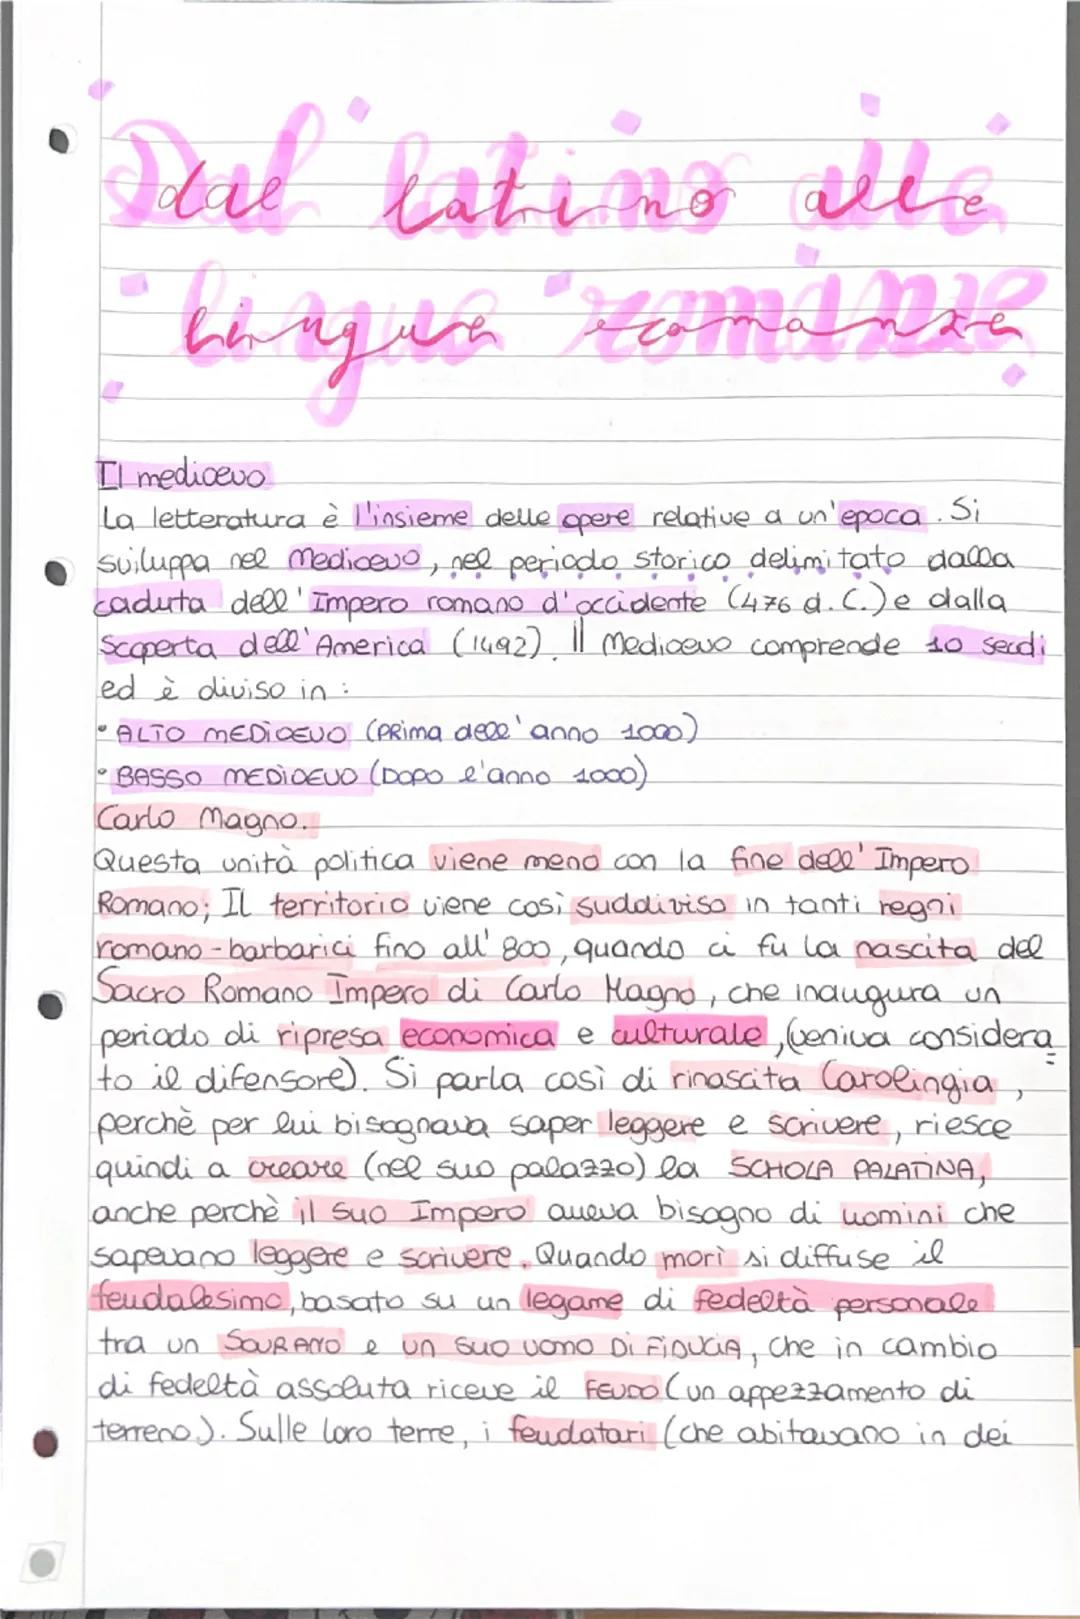 dal latino alle
lingue romanze
Il medioevo
La letteratura è l'insieme delle opere relative a un'epoca. Si
sviluppa nel Medioevo, nel periodo storico delimitato dalla
caduta dell'Impero romano d'occidente (476 d.C.) e dalla
Scoperta dell'America (1492). Il Medioevo comprende 10 secoli
ed è diviso in:
• ALTO MEDIOEVO (PRIMA dell'anno 1000)
• BASSO MEDIOEVO (DOPO l'anno 1000)
Carlo Magno.
Questa unità politica viene meno con la fine dell'Impero
Romano; Il territorio viene così suddiviso in tanti regni
romano-barbarici fino all'800, quando ci fu la nascita del
Sacro Romano Impero di Carlo Magno, che inaugura un
periodo di ripresa economica e culturale, (veniva considera
to il difensore). Si parla così di rinascita Carolingia,
perchè per lui bisognava saper leggere e scrivere, riesce
quindi a creare (nel suo palazzo) la SCHOLA PALATINA,
anche perchè il suo Impero aveva bisogno di uomini che
sapevano leggere e scrivere. Quando morì si diffuse il
feudalesimo, basato su un legame di fedeltà personale
tra un SOVRANO e un suo uomo DI FIDUCIA, che in cambio
di fedeltà assoluta riceve il FEUDO (un appezzamento di
terreno). Sulle loro terre, i feudatari (che abitavano in dei